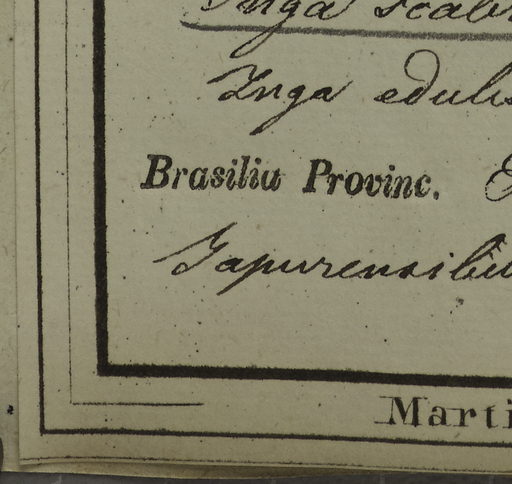 Inga scabr
Inga edulis
Brasilia Provinc.
Japurensibu
Marti